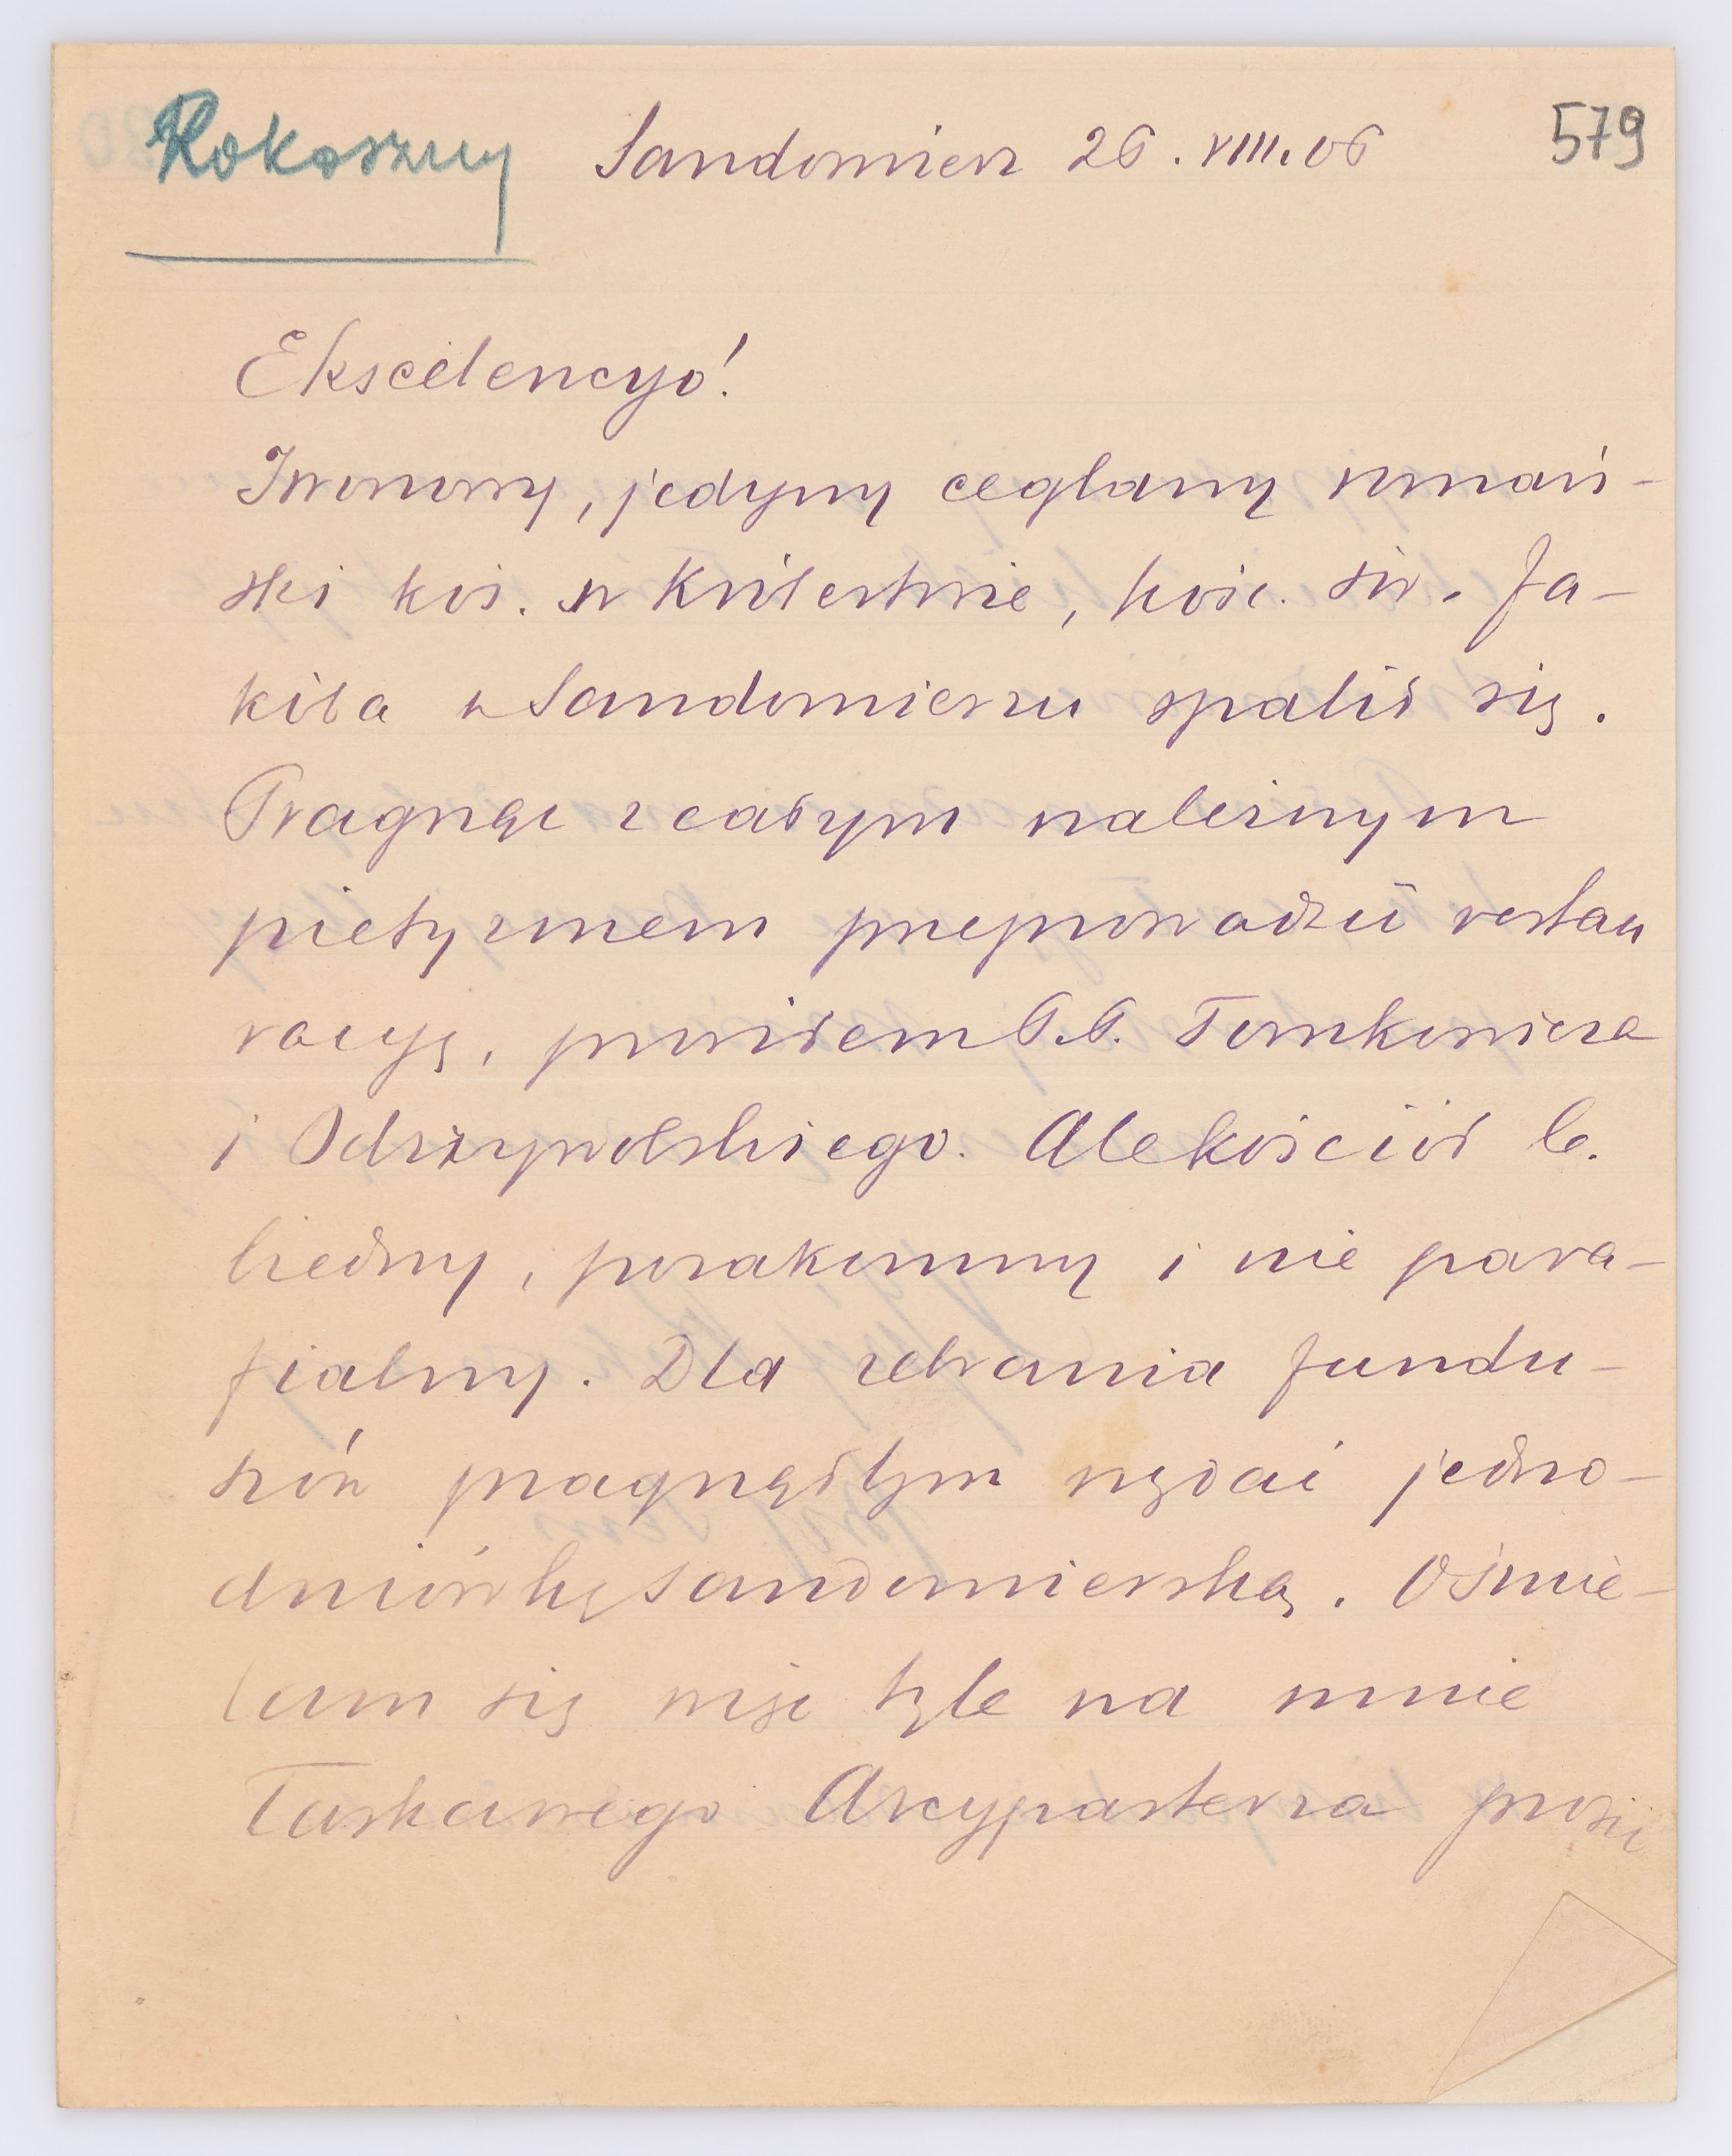 Rokoszny Sandomierz 26. VIII. 06 579
Ekscelencyo!
Wzorowy, jedyny ceglany romań-
ski koś. w Królestwie, kośc. św. Ja-
kóba w Sandomierzu spalił się.
Pragnąc z całym należnym
pietyzmem przeprowadzić restau
racyę, prosiłem P.P. Tomkowicza
i Odrzywolskiego. Ale kościół b.
biedny, poza komuny i nie para-
fialny. Dla zebrania fundu-
szów pragnąłbym wydać jedno-
dniówkę sandomierską. Ośmie-
lam się więc tyle na mnie
łaskawego Arcypasterza prosić